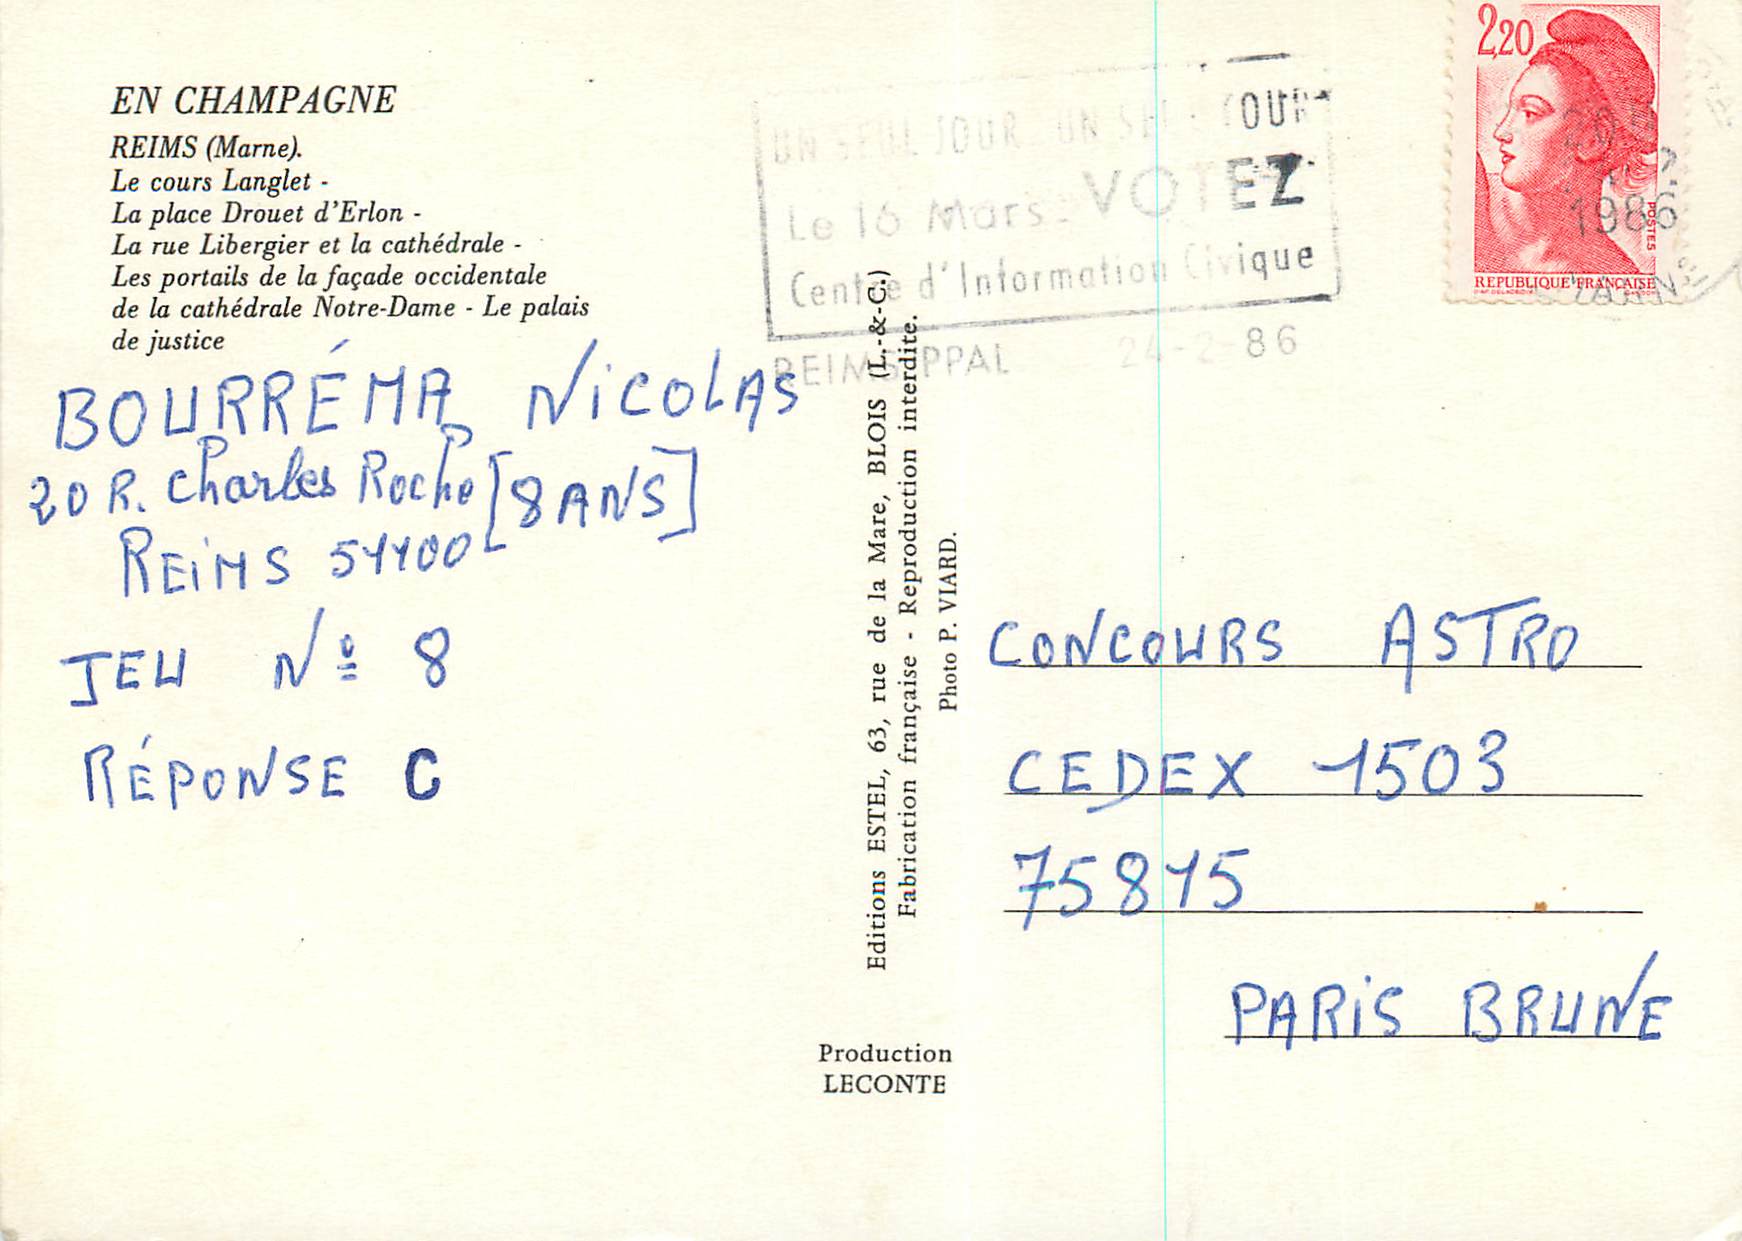 EN CHAMPAGNE
REIMS (Marne).
Le cours Langlet -
La place Drouet d'Erlon -
La rue Libergier et la cathédrale -
Les portails de la façade occidentale
de la cathédrale Notre-Dame - Le palais
de justice
BOURRÉMA NICOLAS
20 R. Charles Roche [8 ANS]
REIMS 51100
JEU Nº 8
RÉPONSE C
UN SEUL JOUR UN SEUL TOUR
Le 16 Mars - VOTEZ
Centre d'Information Civique
REIMS PPAL 24-2-86
2,20
POSTES
REPUBLIQUE FRANÇAISE
1986
Editions ESTEL, 63, rue de la Mare, BLOIS (L.-&-C.)
Fabrication française - Reproduction interdite.
Photo P. VIARD.
Production
LECONTE
CONCOURS ASTRO
CEDEX 1503
75815
PARIS BRUNE